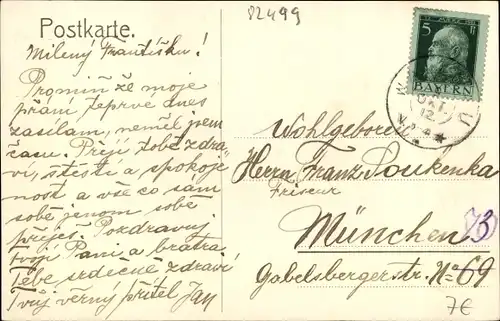 82499
Postkarte.
Milený Františku!
Promiň že moje
přání teprve dnes
zasílam, neměl jsem
času. Přeji tobě zdra-
ví, štěstí a spokoje
nost a vše co sam
sobě jenom sobě
přeješ. Pozdravuj
tvoji Pani a bratra
Tebe srdečně zdraví
Tvůj věrný přítel Jan
5 Pf
BAYERN
Wohlgeboren
Herrn Franz Poukenka
Friseur
München
Gabelsbergerstr. No 69
7€